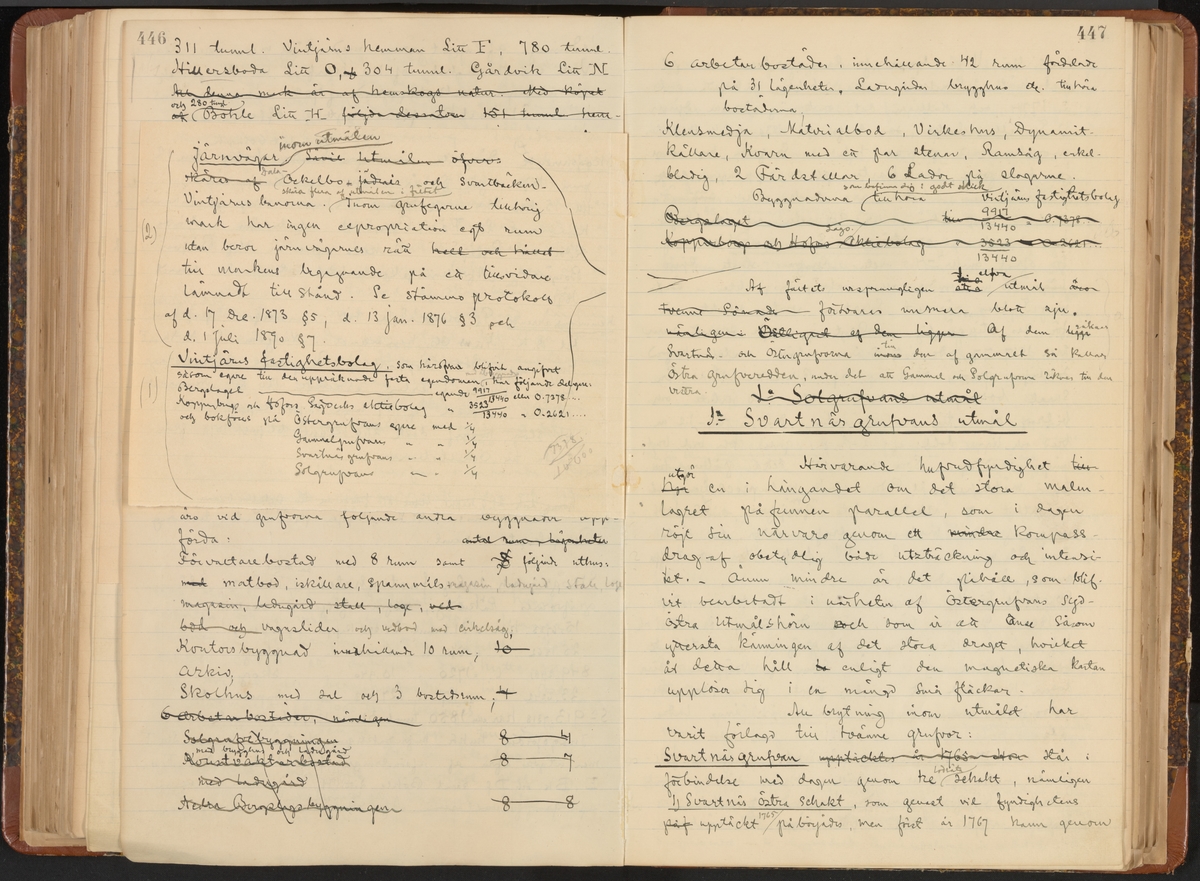 446
311 tunnl. Vintjärns hemman Litt F, 780 tunnl.
Hillersboda Litt O, 304 tunnl. Gårdvik Litt N
och 280 tunnl
Böhle Litt H följda dessutom 151 tunnl hem-
inom utmålen
järnvägar Såväl Utmålen öfver-
skäras af Dala-
Ockelbo - och Svartbäcken-
Vintjärns banorna. Inom grufegarne tillhörig
mark har ingen expropriation egt rum
utan beror järnvägarnes rätt
till markens begagnande på ett tillsvidare
lämnadt tillstånd. Se stämmoprotokoll
af d. 17 Dec. 1873 §5, d. 13 jan. 1876 §3 och
d. 1 juli 1890 §7.
(2)
Vintjärns fastighetsbolag, som härofvan blifvit angifvit
såsom egare till den uppräknade fasta egendomen, har följande delegare:
Bergslaget egande 9917/13440 eller 0.7378
Kopparbergs och Hofors Sågverks Aktiebolag " 3523/13440 " 0.2621....
och bokföres på Östergrufvans egare med 1/4
Gammelgrufvans " " 1/4
Svartnäsgrufvans " " 1/4
Solgrufvans " 1/4
(1)
års vid grufvorna följande andra byggnader upp-
förda: antal rum, lägenheter
Förvaltarebostad med 8 rum samt följande uthus:
matbod, iskällare, spannmåls
magasin, ladugård, stall, loge, ved-
bod och vagnslider och vedbod med cirkelsåg,
Kontorsbyggnad innehållande 10 rum, 10
Arkiv,
Skolhus med sal och 3 bostadsrum, 4
6 arbetarbostäder, nämligen
Solgrufvebyggningen 8 — 4
med brygghus och ladugård
Konstvaktarbostad 8 — 7
med ladugård
Nedra Bergslagsbyggningen 8 — 8
447
6 arbetarbostäder, innehållande 42 rum fördelade
på 31 lägenheter, Ladugårdar brygghus etc. tillhöra
bostäderna,
Klensmedja, Materialbod, Virkeshus, Dynamit-
källare, Kvarn med ett par stenar, Ramsåg, enkel-
bladig, 2 Fårdstallar 6 Lador på slogarne.
som befinna sig i godt skick
Byggnaderna tillhöra Vintjärns fastighetsbolag
Bergslaget till 9917/13440 = 0.7378..
Kopparbergs och Hofors Aktiebolag " 3523/13440 = 0.2621..
Af fältets ursprungligen elfva utmål
försvaras numera blott sju.
Af dem ligga
Svartnäs- och Östergrufvorna inom den af gammalt så kallade
östra grufveredden, under det att Gammel och Solgrufvorna räknas till den
vestra.
1a Solgrufvans utmål
1a Svartnäs grufvans utmål
Härvarande hufvudfyndighet
utgör en i hängandet om det stora malm-
lagret påfunnen parallel, som i dagen
röjt sin närvaro genom ett mindre kompass-
drag af obetydlig både utsträckning och intensi-
tet. - Ännu mindre är det påhåll, som blif-
vit bearbetadt i närheten af Östergrufvans syd-
östra utmålshörn och som är ett anse såsom
yttersta känningen af det stora draget, hvilket
åt detta håll enligt den magnetiska kartan
upplöser sig i en mängd små fläckar.
All brytning inom utmålet har
varit förlagd till tvänne grufvor:
Svartnäsgrufvan upptäcktes år 1765 står i
förbindelse med dagen genom tre schakt, nämligen
1) Svartnäs östra schakt, som genast vid fyndighetens
upptäckt 1765 påbörjades, men först år 1767 hann genom